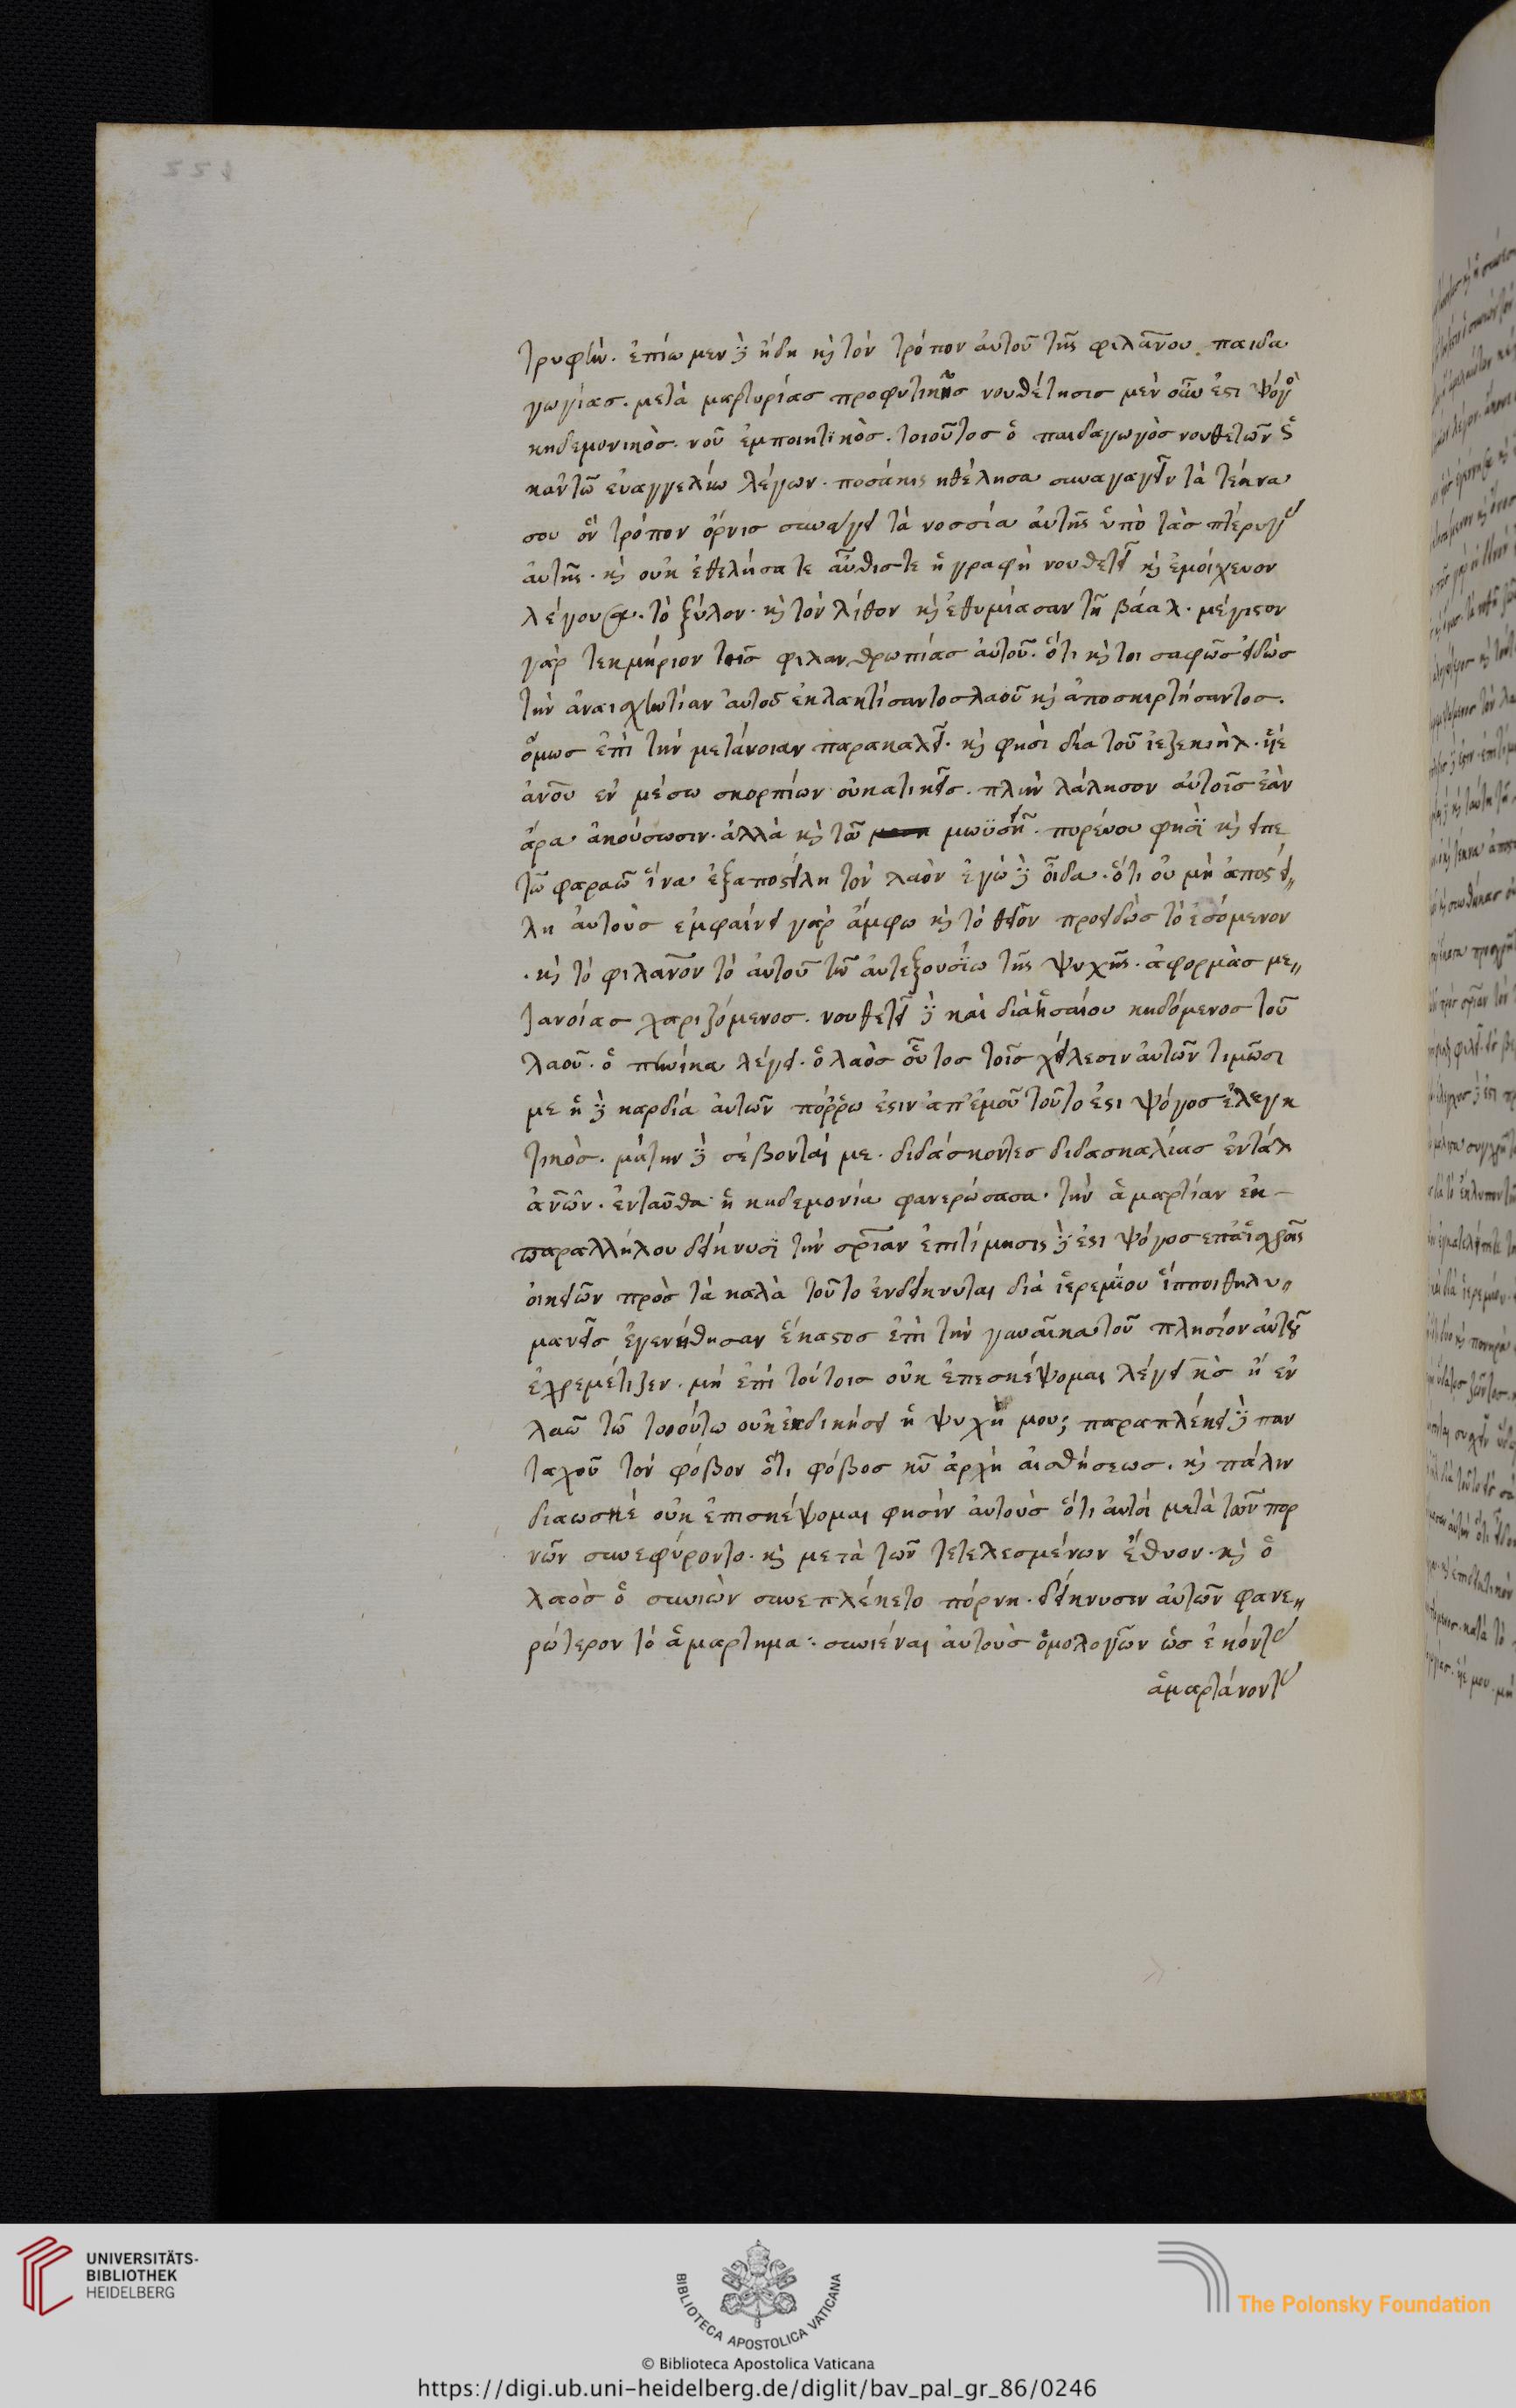 τρυφήν. ἐπίωμεν δὲ ἤδη καὶ τὸν τρόπον αὐτοῦ τῆς φιλανου παιδα
γωγίασ. μετὰ μαρτυρίασ προφητικῆσ νουθέτησισ μὲν οὖν ἐστι ψόγος
κηδεμονικὸσ. νοῦ ἐμποιητϊκὸσ. τοιοῦτοσ ὁ παιδαγωγὸσ νουθετῶν ὡς
κἀν τῶ εὐαγγελίω λέγων. ποσάκις ηθέλησα συναγαγεῖν τὰ τέκνα
σου ὃν τρόπον ὄρνισ συνάγει τὰ νοσσία αὐτῆς ὑπὸ τὰσ πτέρυγας
αὐτῆς. καὶ οὐκ ἐθελήσατε αὖθιστε ἡ γραφὴ νουθετεῖ καὶ ἐμοίχευον
λέγουσα. τὸ ξύλον. καὶ τὸν λίθον καὶ ἐθυμίασαν τῆ βάαλ. μέγιστον
γὰρ τεκμήριον τῆς φιλανθρωπίασ αὐτοῦ. ὅτι καὶ τοι σαφῶσ εἰδὼσ
τὴν ἀναισχυντίαν αὐτοῦ ἐκλακτίσαντοσ λαοῦ καὶ ἀποσκιρτήσαντοσ.
ὅμωσ ἐπὶ τὴν μετάνοιαν παρακαλεῖ. καὶ φησὶ δία τοῦ ἰεζεκιὴλ. υἱέ
ἀνου εν μέσω σκορπίων οὐκατικεῖσ. πλὴν λάλησον αὐτοῖσ ἐὰν
ἄρα ἀκούσωσιν. ἀλλὰ καὶ τῶ μωϋσῆ. πορεύου φησὶ καὶ εἰπε
τῶ φαραῶ ἵνα ἐξαποστείλη τὸν λαὸν ἐγὼ δὲ οἶδα. ὅτι οὐ μὴ ἀποστεί〃
λη αὐτοὺσ εμφαίνει γὰρ ἄμφω καὶ τὸ θεῖον προειδὼσ τὸ ἐσόμενον
. καὶ τὸ φιλανον τὸ αὐτοῦ τῶ αὐτεξουσίω τῆς ψυχῆς. ἀφορμὰσ με〃
τανοίασ χαριζόμενοσ. νουθετεῖ δὲ καὶ διὰ ἡσαίου κηδόμενοσ τοῦ
λαοῦ. ὁ πηνίκα λέγει. ὁ λαὸσ οὗτοσ τοῖσ χείλεσιν αὐτῶν τιμῶσι
με ἡ δὲ καρδία αὐτῶν πόρρω ἐστιν ἀπ' ἐμοῦ τοῦτο ἐστι ψόγοσ ἐλεγκ
τικὸσ. μάτην δὲ σέβονταί με. διδάσκοντεσ διδασκαλίασ ἐντάλ
ἀνῶν. ἐνταῦθα ἡ κηδεμονία φανερώσασα. τὴν ἁμαρτίαν ἐκ-
παραλλήλου δείκνυσϊ τὴν σρίαν ἐπιτίμησις δὲ ἐστι ψόγοσ επ' αἰσχροῖς
οἰκειῶν πρὸσ τὰ καλὰ τοῦτο ἐνδείκνυται διὰ ἱερεμίου ἵπποι θηλυ〃
μανεῖσ ἐγενήθησαν ἕκαστοσ ἐπὶ τὴν γυναῖκα τοῦ πλησίον αὐτοῦ
ἐχρεμέτιζεν. μὴ ἐπὶ τούτοισ οὐκ ἐπεσκέψομαι λέγει κσ ἢ ἐν
λαῶ τῶ τοιούτω οὐκ ἐκδικήσει ἡ ψυχή μου; παραπλέκει δὲ παν
ταχοῦ τὸν φόβον ὅτι φόβοσ κυ ἀρχὴ αἰσθήσεωσ. καὶ πάλιν
διαωσηέ οὐκ ἐπισκέψομαι φησὶν αὐτοὺσ ὅτι αὐτοὶ μετὰ τῶν πορ
νῶν συνεφύροντο. καὶ μετὰ τῶν τετελεσμένων ἔθυον. καὶ ὁ
λαὸσ ὁ συνιὼν συνεπλέκετο πόρνη. δείκνυσιν αὐτῶν φανε〃
ρώτερον τὸ ἁμαρτημα. συνιέναι αὐτοὺσ ὁμολογῶν ὡσ ἑκόντας
ἁμαρτάνοντας
UNIVERSITÄTS-
BIBLIOTHEK
HEIDELBERG
BIBLIOTECA APOSTOLICA VATICANA
The Polonsky Foundation
© Biblioteca Apostolica Vaticana
https://digi.ub.uni-heidelberg.de/diglit/bav_pal_gr_86/0246